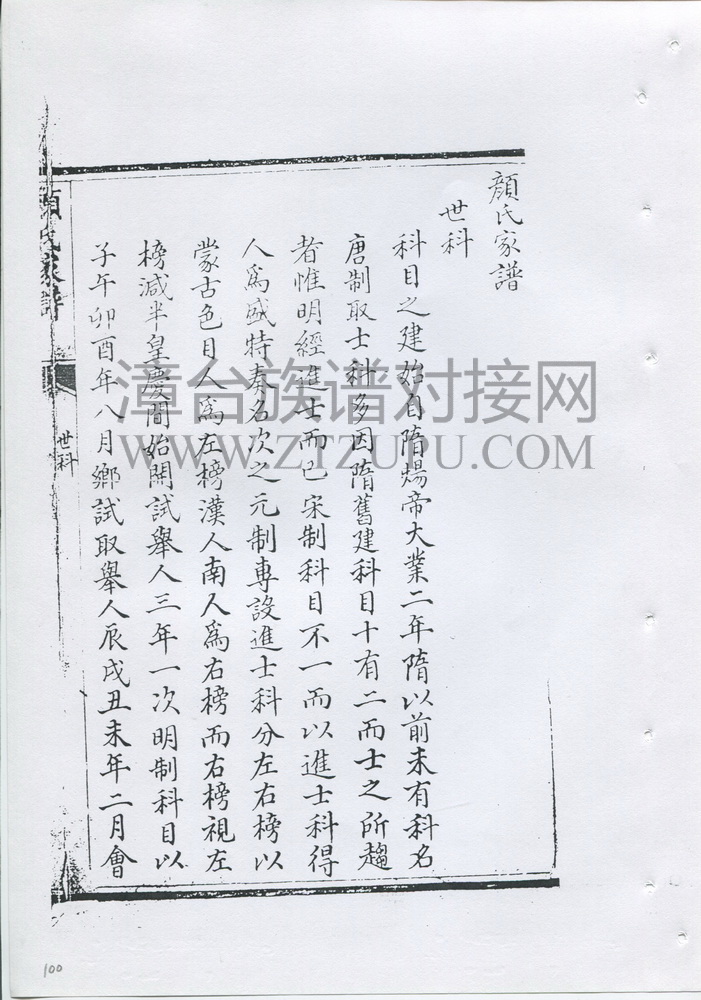 顏氏家譜
世科
科目之建始自隋煬帝大業二年隋以前未有科名
唐制取士科多因隋舊建科目十有二而士之所趨
者惟明經進士而已宋制科目不一而以進士科得
人為盛特奏名次之元制專設進士科分左右榜以
蒙古色目人為左榜漢人南人為右榜而右榜視左
榜減半皇慶間始開試舉人三年一次明制科目以
子午卯酉年八月鄉試取舉人辰戌丑未年二月會
顏氏家譜
世科
漳台族谱对接网
WWW.ZTZUPU.COM
100